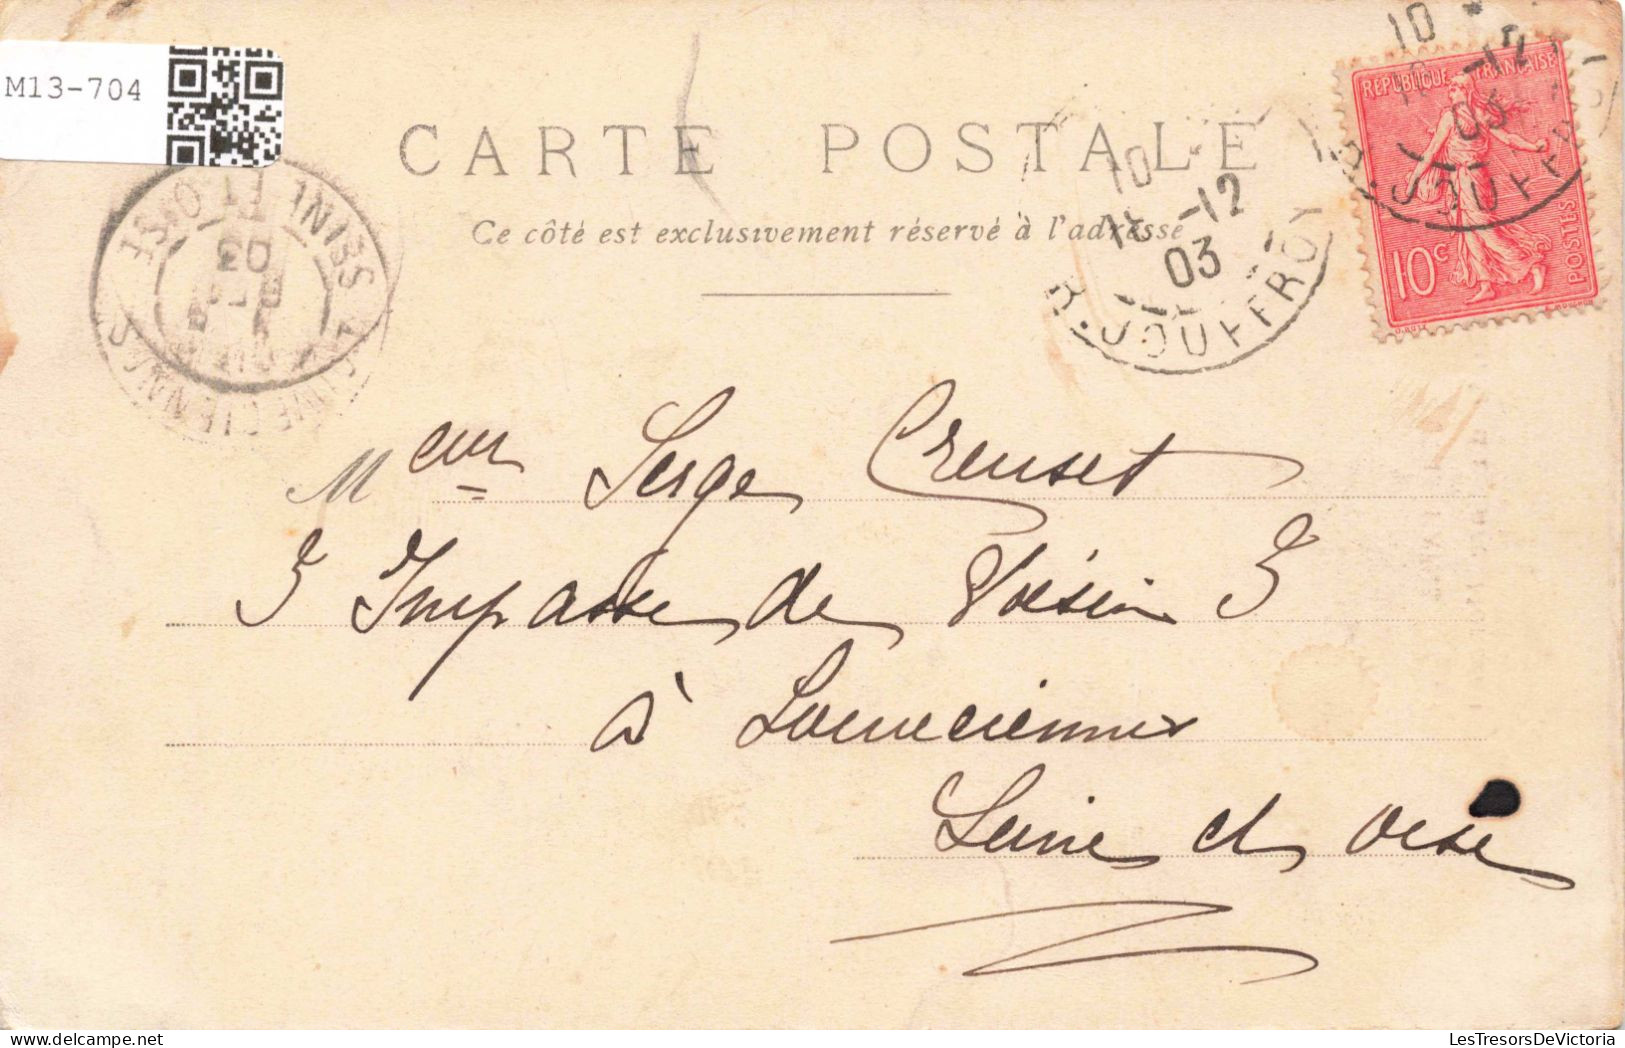 M13-704
CARTE POSTALE
Ce côté est exclusivement réservé à l'adresse
REPUBLIQUE FRANÇAISE
10c
POSTES
10
-12
03
R. JOUFFROY
10
-12
03
R. JOUFFROY
SEINE ET OISE
LOUVECIENNES
03
Mceur Serge Creuset
3 Impasse de Voisin 3
à Louveciennes
Seine et Oise
LesTresorsDeVictoria